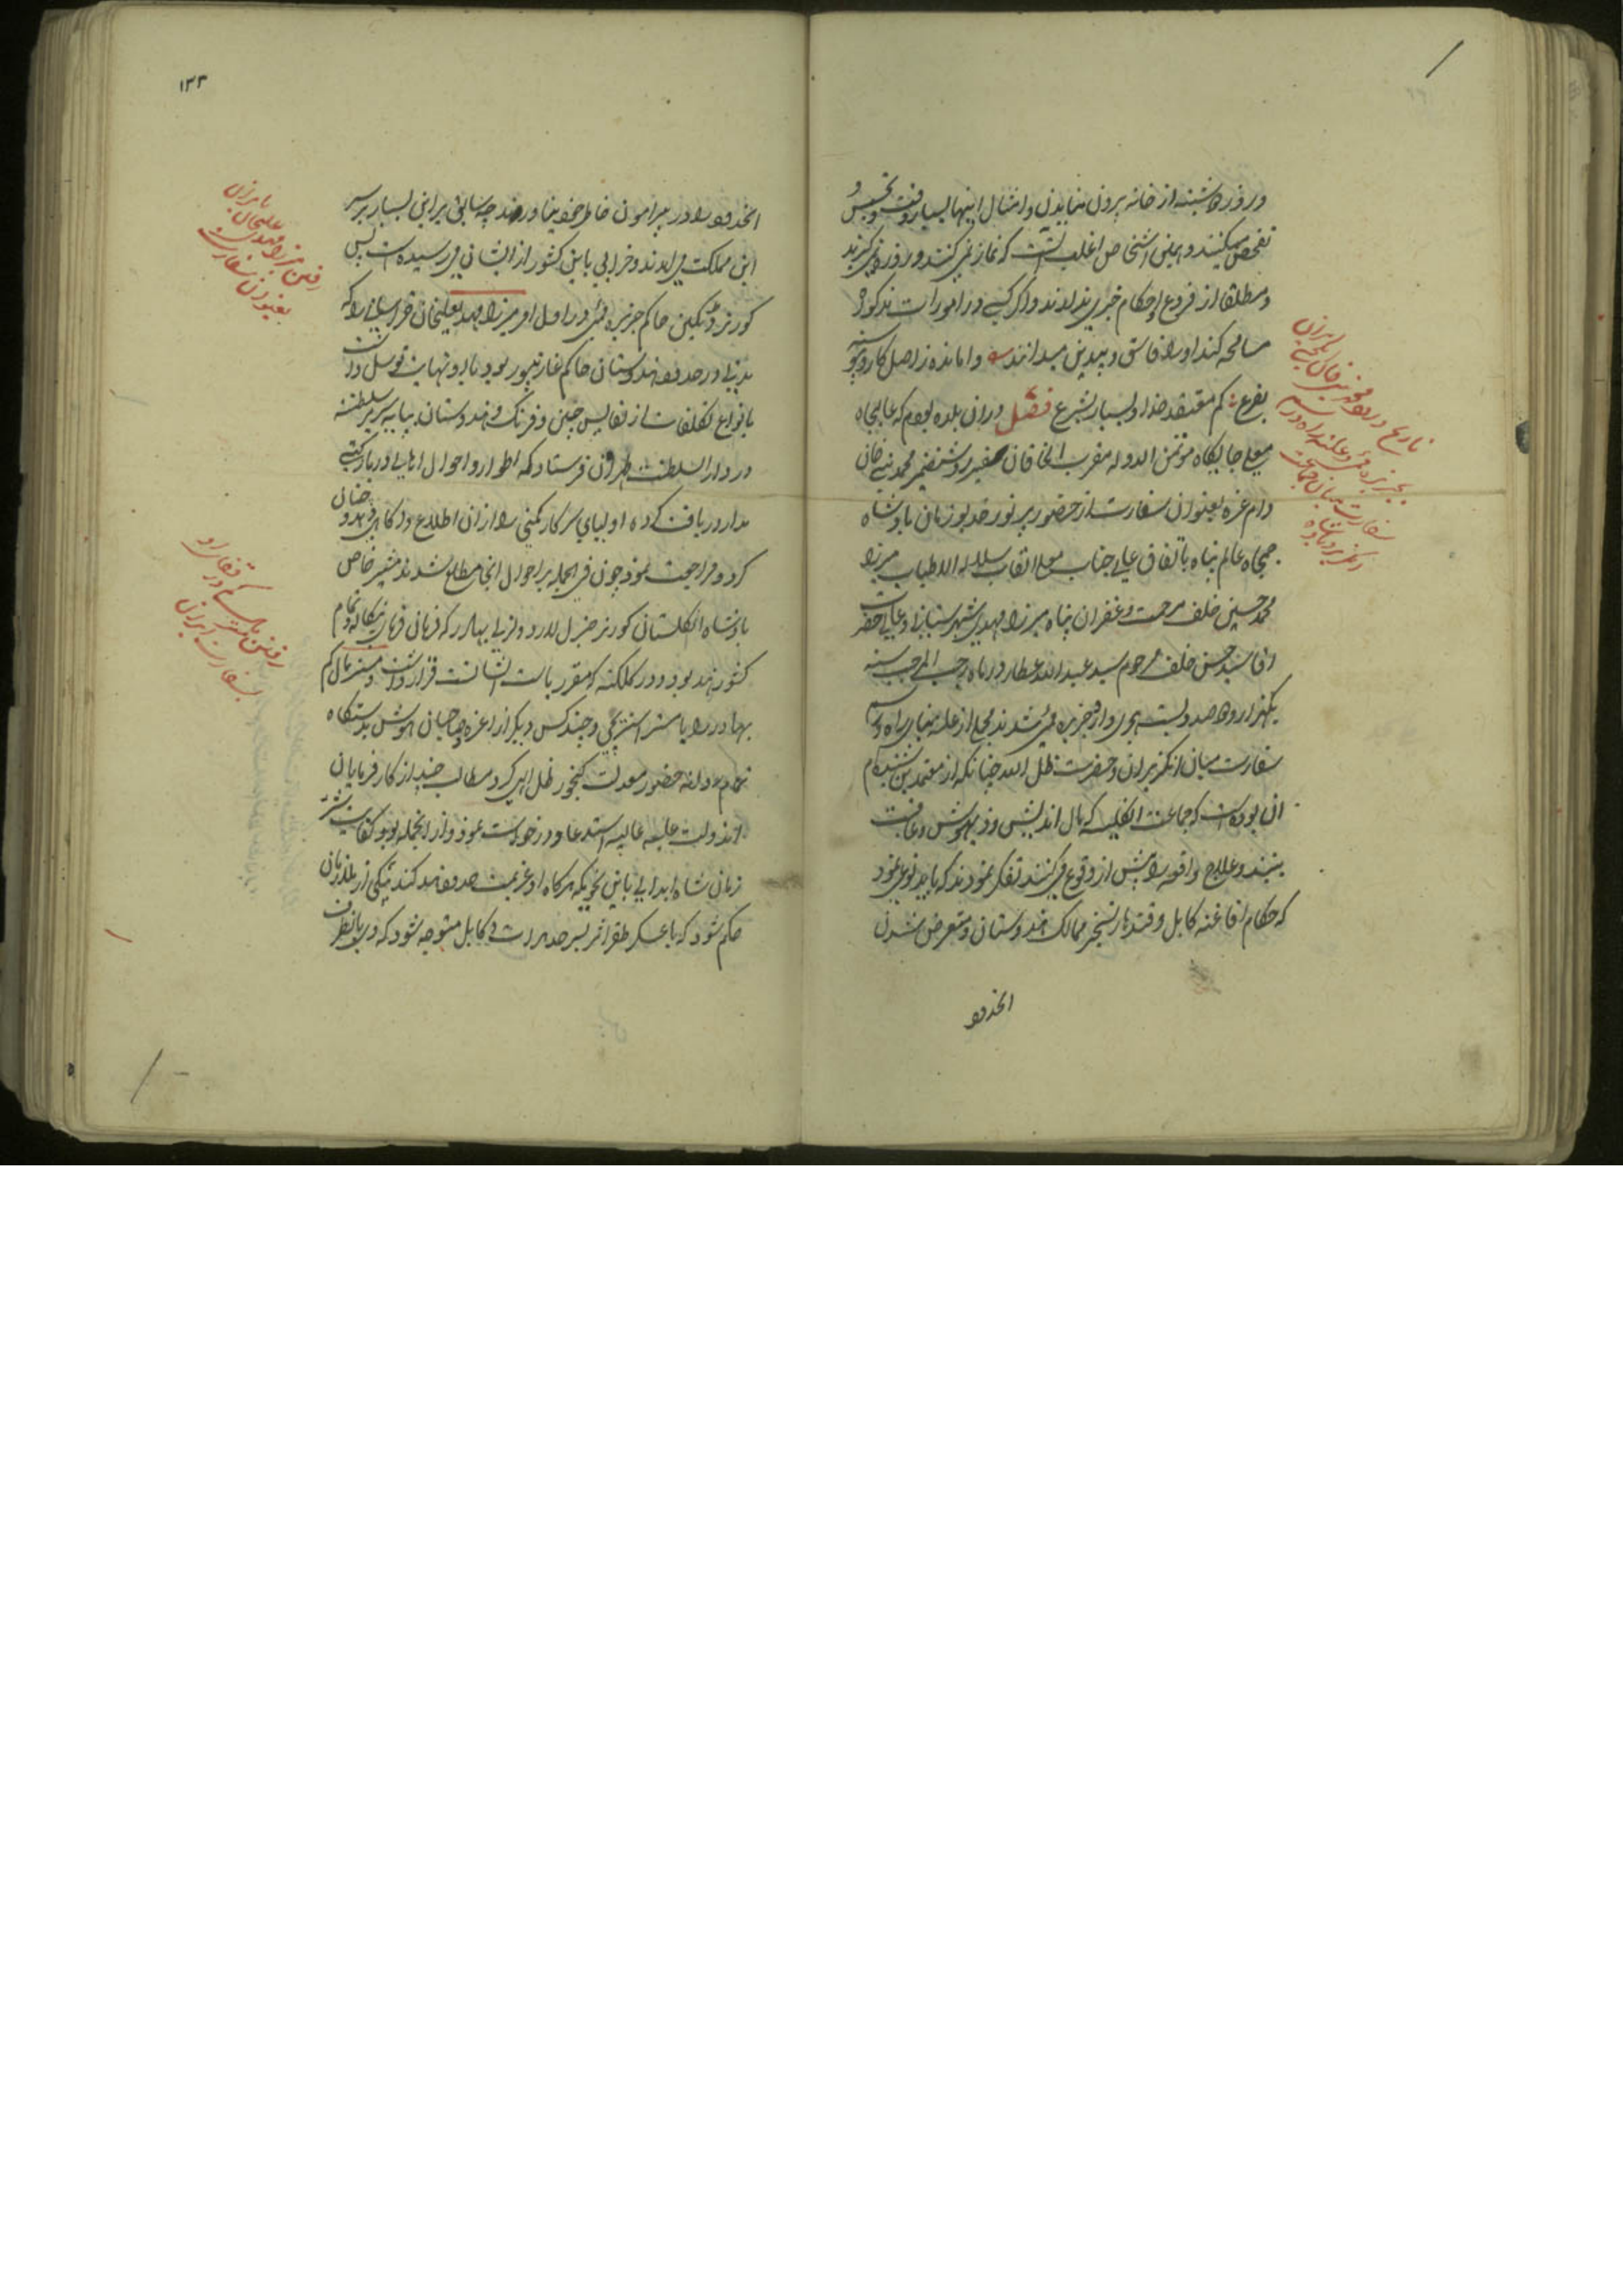 و روز یکشنبه از خانه بیرون نیایند و امثال اینها بسیار و تجسس و
تفحص میکنند و همین اشخاص اغلب که نماز نمی کنند و روزه نمی گیرند
و مطلقا از فروع احکام خبری ندارند و اگر کسی در امورات مذکوره
مسامحه کند او را فاسق و بیدین میدانند وامانده ز اصل کار و پیوسته
بفرع کم معتقد خدا و بسیار بشرع فصل در آن بلده بودم که عالیجاه
معلی جایگاه موتمن الدوله مقرب الخاقان سفیر روشنضمیر محمد نبی خان
دام عزه بعنوان سفارت از حضور پر نور خدیو زمان پادشاه
جمجاه عالم پناه باتفاق عالی جناب معلی القاب سلالة الاطیاب میرزا
محمد حسین خلف مرحمت و غفران پناه میرزا مهدی شهرستانی و عالی حضرت
اقا سید حسن خلف مرحوم سید عبد الله عطار در ماه رجب المرجب سنه
یکهزار و دو صد و بیست هجری وارد جزیره شدند مجملی از علت بنای راه و رسم
سفارت میان انگریزان و حضرت ظل الله چنانکه از معتمدین شنیده ام
آن بوده است که جماعت انگلیسیه که مال اندیش و ذیهوش و عاقبت
بینند و علاج واقعه را پیش از وقوع می کنند تفکر نمودند که باید نوعی نمود
که حکام افاغنه کابل و قندهار تسخیر ممالک هندوستان و متعرض شدن
انحدود
تاریخ ورود محمد نبی خان ایلچی ایران
بجزیره و علت راه و رسم
سفارت میان جماعت
انگریز و پادشاه
۱۳۳
انحدود را در پیرامون خاطر خود نیاورند چه سابق بر این بسیار بر سر
این مملکت می امدند و خرابی باین کشور از ایشان می رسیده است پس
گورنر دنکین حاکم جزیره در اول امر میرزا مهدیعلیخان خراسانی را که
مدتی در حدود هندوستان حاکم غازیپور بود با او نهایت توسل داشت
با انواع تکلفات از نفایس چین و فرنگ و هندوستان بپایه سریر سلطنت
در دار السلطنت طهران فرستاد که اطوار و احوال اهالی دربار گیتی
مدار دریافت کرده اولیای سرکار کمپنی را از ان اطلاع و آگاهی دهد و چنان
کرد و مراجعت نمود چون فی الجمله بر احوال انجا مطلع شدند مشیر خاص
پادشاه انگلستان گورنر جنرل لارد ولزلی بهادر که فرمان فرمای بنگاله و تمام
کشور هند بود و در کلکته که مقر ریاست ایشانست قرار داشت مستر مالکم
بهادر را با مستر استریچی و چند کس دیگر از اعزه صاحبان هوش بدستگاه
تمام روانه حضور معدلت گنجور ظل الهی کرد و مطالب چند از کارفرمایان
آندولت علیه عالیه استدعا و درخواست نمود و از انجمله بود کفایت شر
زمان شاه ابدالی باین نحو که هرگاه او عزیمت حدود هند کند بیکی از
حکم شود که با عسکر ظفر اثر بسرحد هرات و کابل متوجه شود که در
رفتن میرزا مهدی
علیخان بایران
بعنوان سفارت
رفتن مستر مالکم
بسفارت ایران